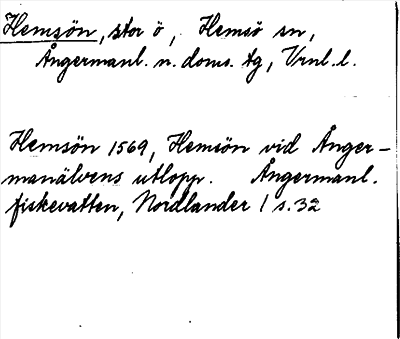 Hemsön, stor ö, Hemsö sn,
Ångermanl. n. doms. tg, Vrnl. l.
Hemsön 1569, Hemsön vid Ånger-
manälvens utlopp. Ångermanl.
fiskevatten, Nordlander 1 s. 32